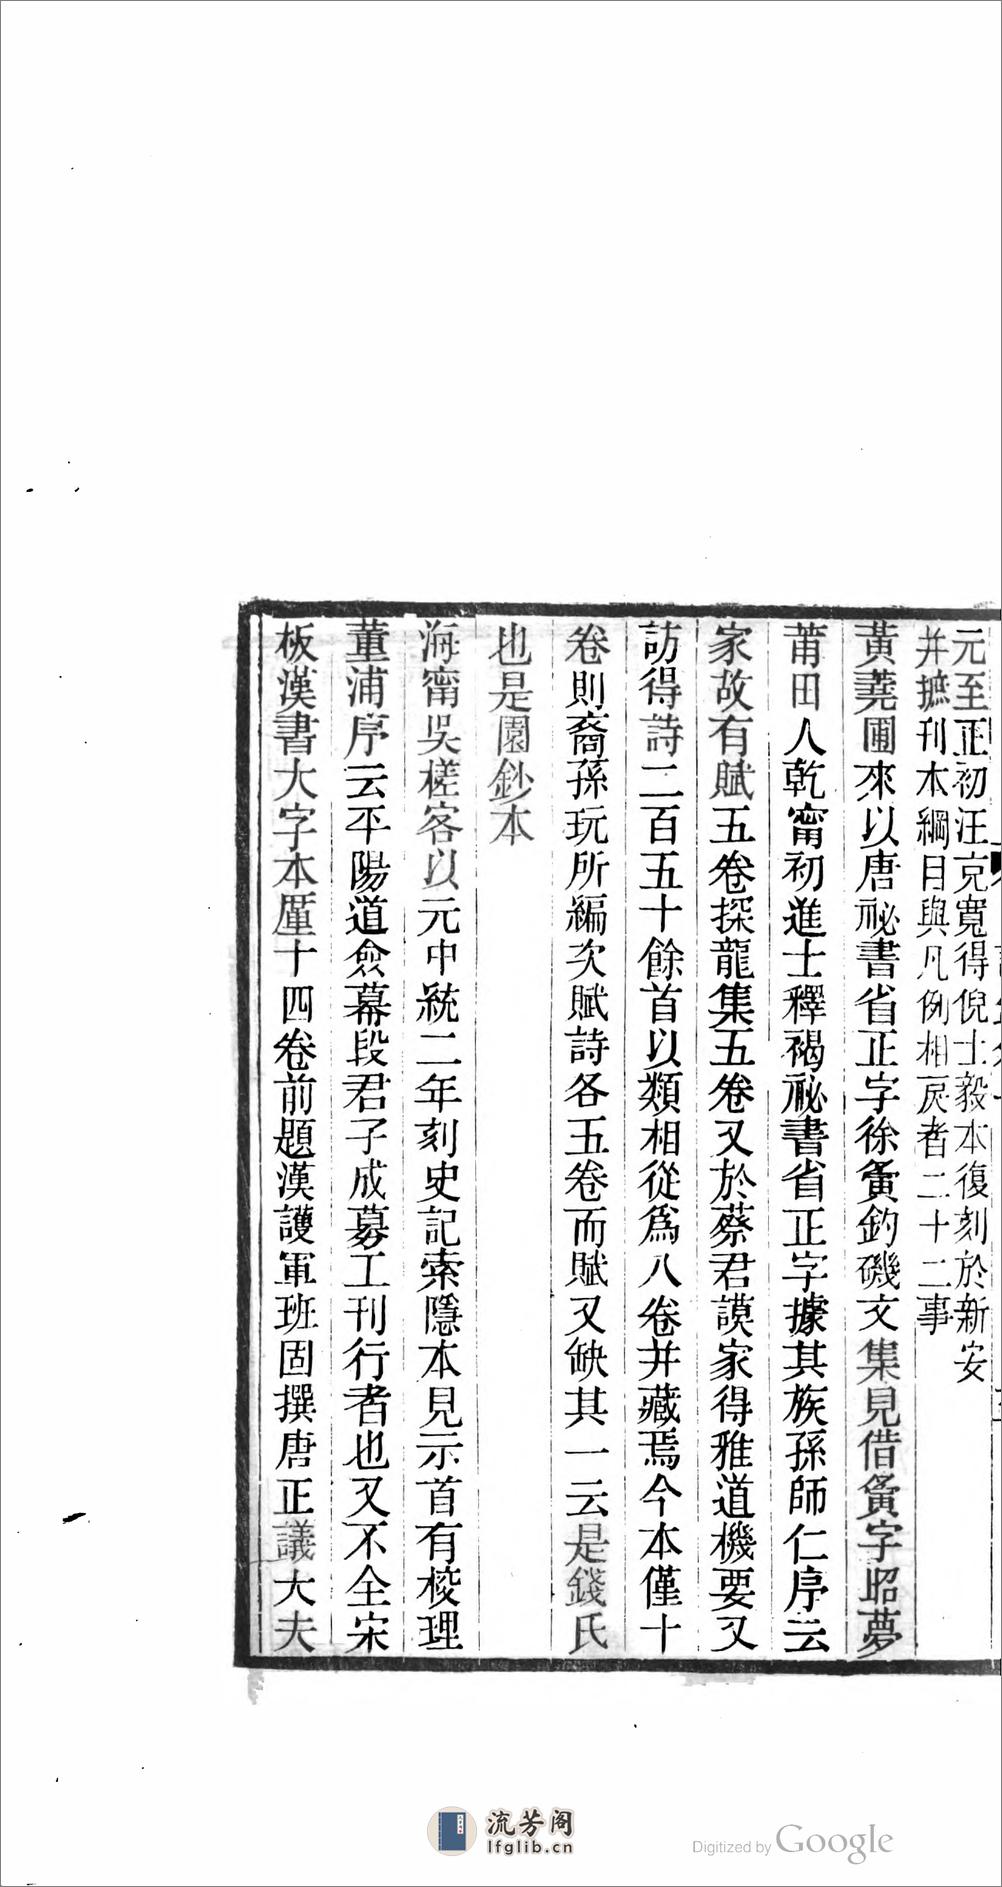 元至正初汪克寬得倪士毅本復刻於新安
并摭刊本綱目與凡例相戾者二十二事
黃蕘圃來以唐祕書省正字徐夤釣磯文集見借夤字昭夢
莆田人乾甯初進士釋褐祕書省正字據其族孫師仁序云
家故有賦五卷探龍集五卷又於蔡君謨家得雅道機要又
訪得詩二百五十餘首以類相從爲八卷并藏焉今本僅十
卷則裔孫玩所編次賦詩各五卷而賦又缺其一云是錢氏
也是園鈔本
海甯吳槎客以元中統二年刻史記索隱本見示首有校理
董浦序云平陽道僉幕段君子成募工刊行者也又不全宋
板漢書大字本厪十四卷前題漢護軍班固撰唐正議大夫
流芳阁
lfglib.cn
Digitized by Google